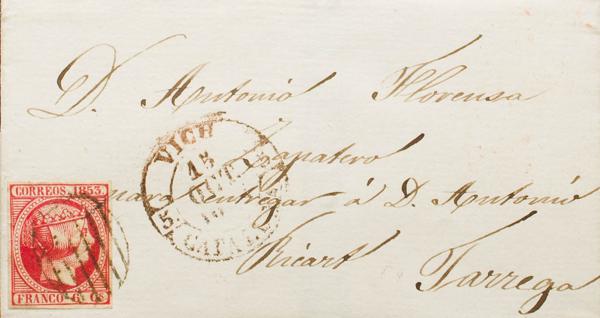 D. Antonio Florensa
Zapatero
para entregar á D. Antonio
Ricart Tarrega
VICH
15
CATALUÑA
CORREOS. 1853
FRANCO 6 Cs